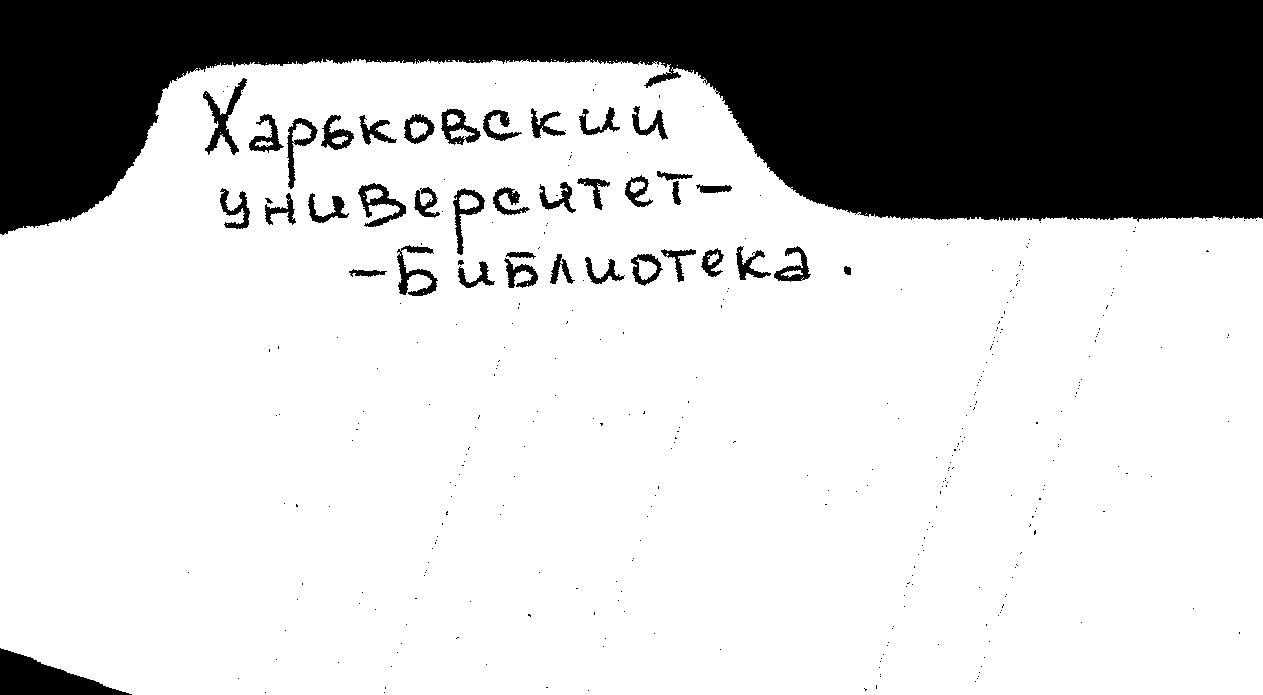 Харьковский
университет-
-Библиотека.